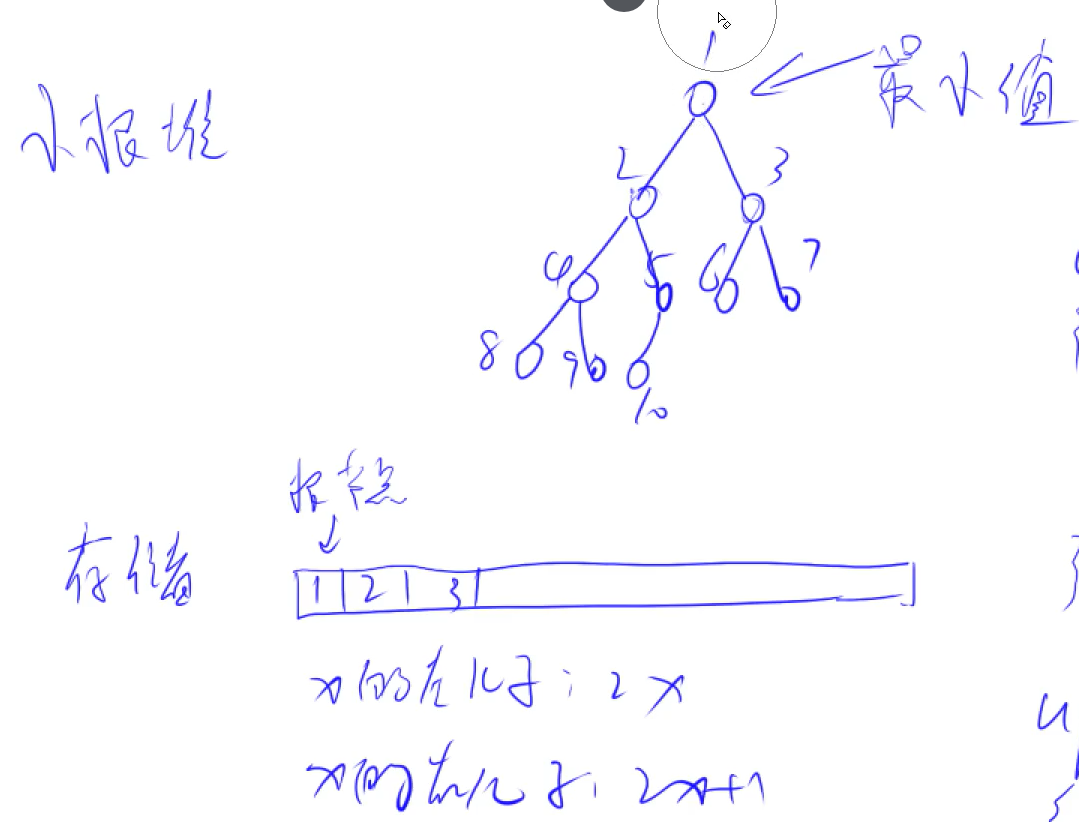 1
最小值
小根堆
2 3
4 5 6 7
8 9
10
根节点
存储
1 2 3
x的左儿子：2x
x的右儿子：2x+1